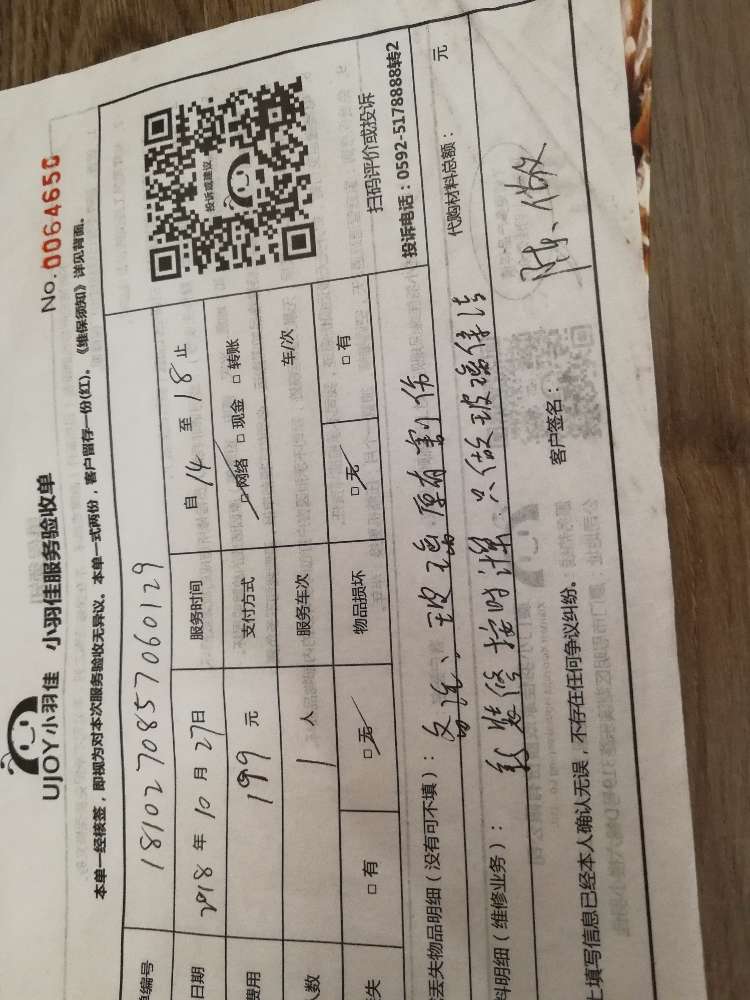 UJOY小羽佳 小羽佳服务验收单
No.0064650
本单一经核签，即视为对本次服务验收无异议。本单一式两份，客户留存一份(红)。《维保须知》详见背面。
单编号 1810270857060129
日期 2018 年 10 月 27 日 服务时间 自 14 至 18 止
费用 199 元 支付方式 □网络 □现金 □转账
人数 1 人 服务车次 车/次
失 □有 □无 物品损坏 □无 □有
投诉或建议
扫码评价或投诉
投诉电话：0592-5178888转2
丢失物品明细（没有可不填）： 备注、玻璃原有割伤
料明细（维修业务）： 新装修按时计 只做玻璃保洁
代购材料总额： 元
上填写信息已经本人确认无误，不存在任何争议纠纷。
客户签名：